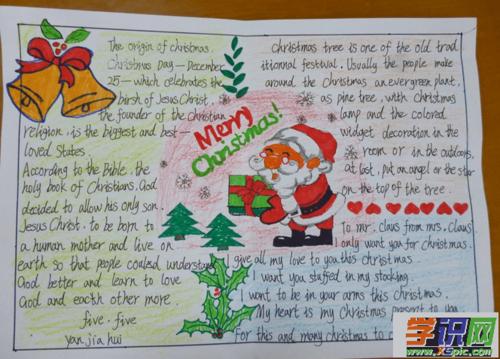 The origin of christmas.
Christmas Day — December
25 — which celebrates the
birsh of Jesus Christ,
the founder of the Christian
religion, is the biggest and best —
loved States.
According to the Bible, the
holy book of Christians, God
decided to allow his only son,
Jesus Christ, to be born to
a human mother and live on
earth so that people could understand
God better and learn to love
God and eacth other more.
five . five
yan jia hui
Merry
Christmas!
Christmas tree is one of the old trad
itionnal festival. Usually the people make
around the Christmas an evergreen plant,
as pine tree, with Christmas
lamp and the colored
widget decoration in the
room or in the outdoors,
at last, put an angel or the star
on the top of the tree.
To mr. claus from mrs. claus
I only want you for christmas.
I give all my love to you this christmas.
I want you stuffed in my stocking.
I want to be in your arms this christmas.
My heart is my Christmas present to you
For this and many christmas to
学识网
www.xspic.com